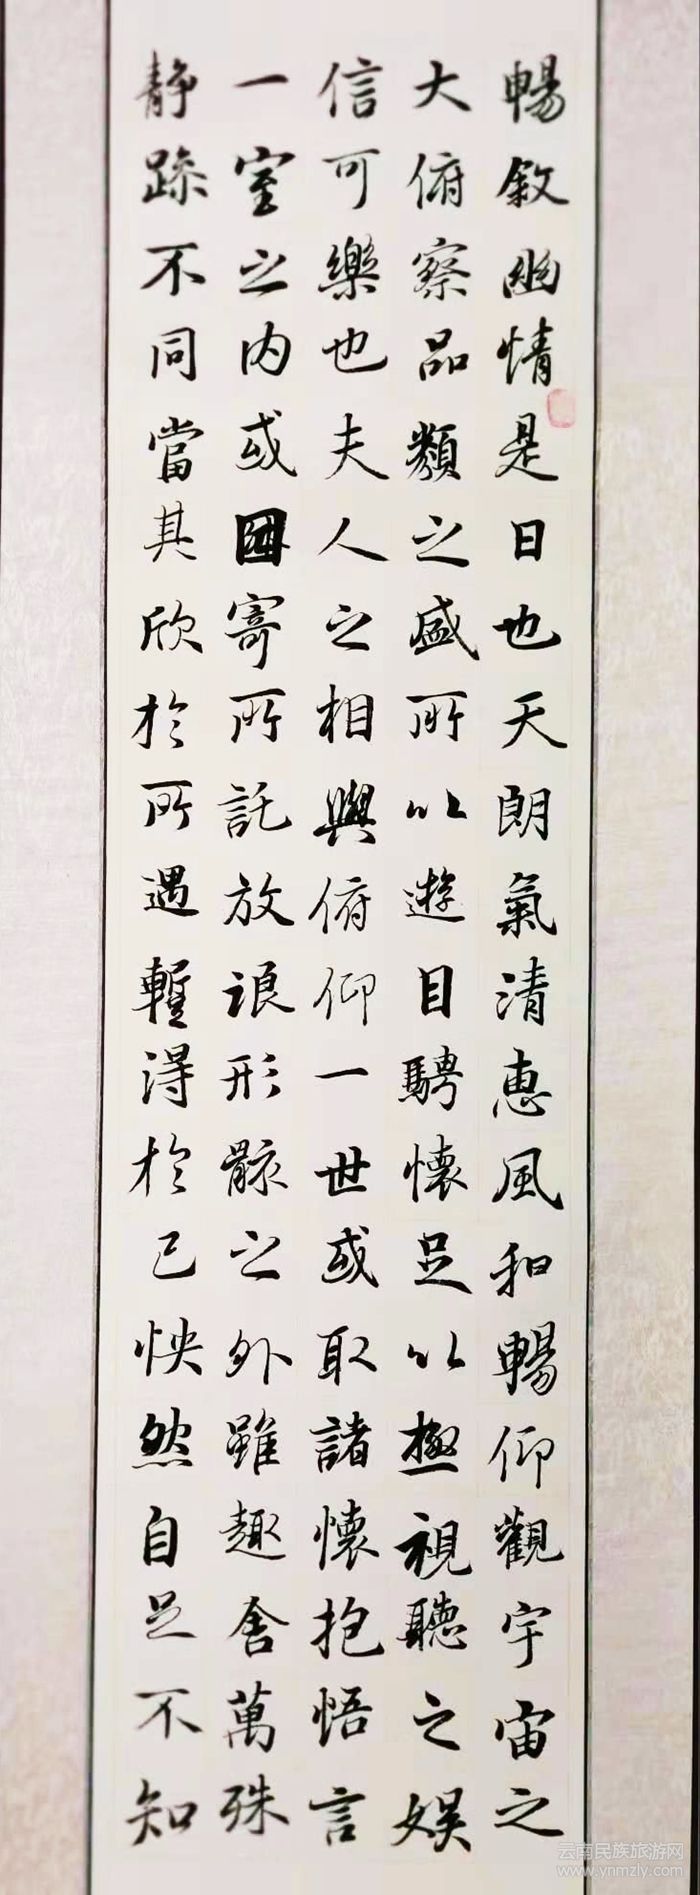 暢敘幽情是日也天朗氣清惠風和暢仰觀宇宙之
大俯察品類之盛所以遊目騁懷足以極視聽之娛
信可樂也夫人之相與俯仰一世或取諸懷抱悟言
一室之内或因寄所託放浪形骸之外雖趣舍萬殊
靜躁不同當其欣於所遇暫得於己怏然自足不知
云南民族旅游网
www.ynmzly.com